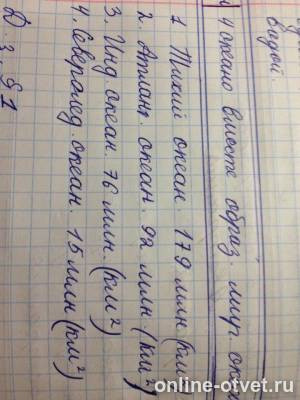 водой.
4 океана вместе образ. мир. океан
1. Тихий океан. 179 млн (км
2. Атлант океан. 92 млн (км²)
3. Инд. океан. 76 млн. (км²)
4. Северолед. океан. 15 млн (км²)
Д. з. § 1
online-otvet.ru